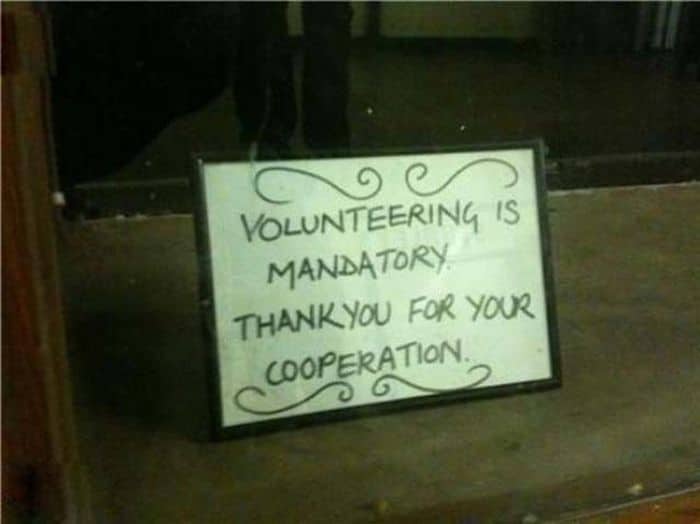 VOLUNTEERING IS
MANDATORY.
THANKYOU FOR YOUR
COOPERATION.